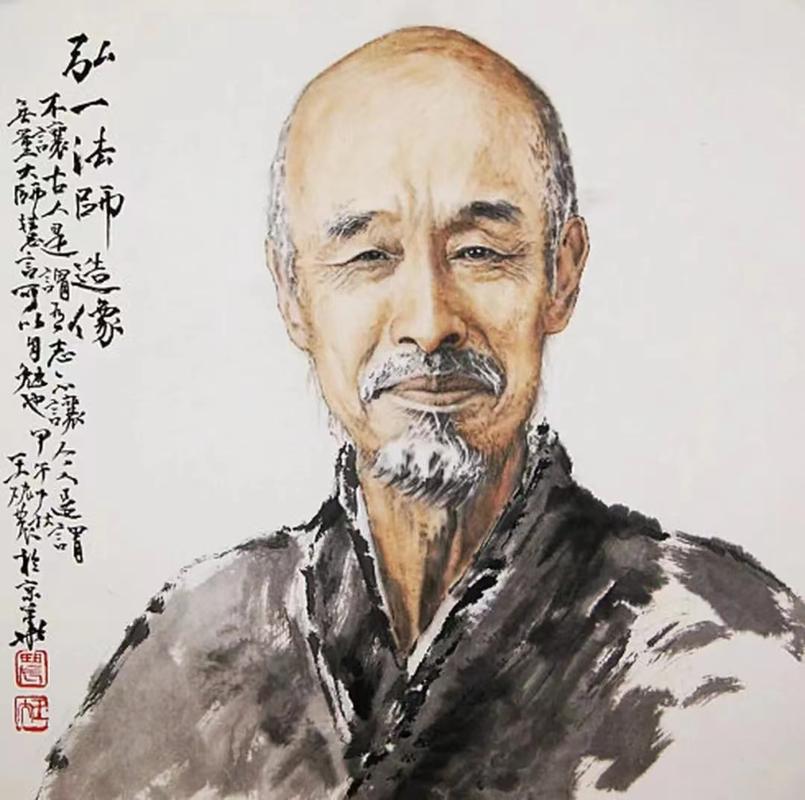 弘一法師造像
不讓古人是謂有志不讓今人是謂
無量大師慧言可以自勉也 甲午秋
王農於京華
農